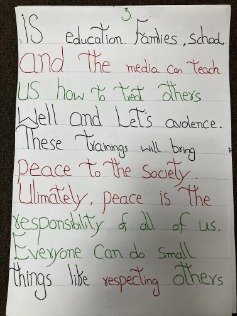 3
IS education. Families, School
and the media can teach
us how to treat others
Well and Let's avoid ence.
These trainings will bring
peace to the Society.
Ulimately, peace is the
responsiblity of all of us.
Everyone Can do small
things like respecting others